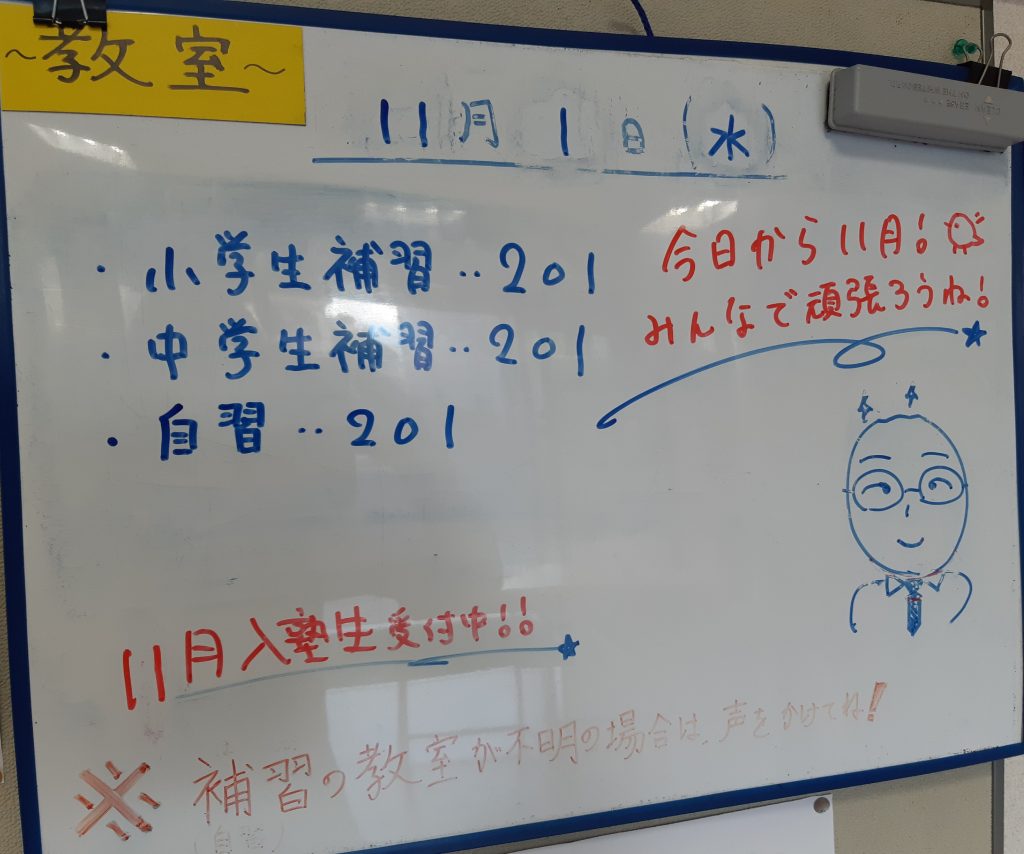 ~教室~
11月 1日(水)
・小学生補習‥201
・中学生補習‥201
・自習‥201
今日から11月!
みんなで頑張ろうね!
11月入塾生受付中!!
※ 補習の教室が不明の場合は、声をかけてね!